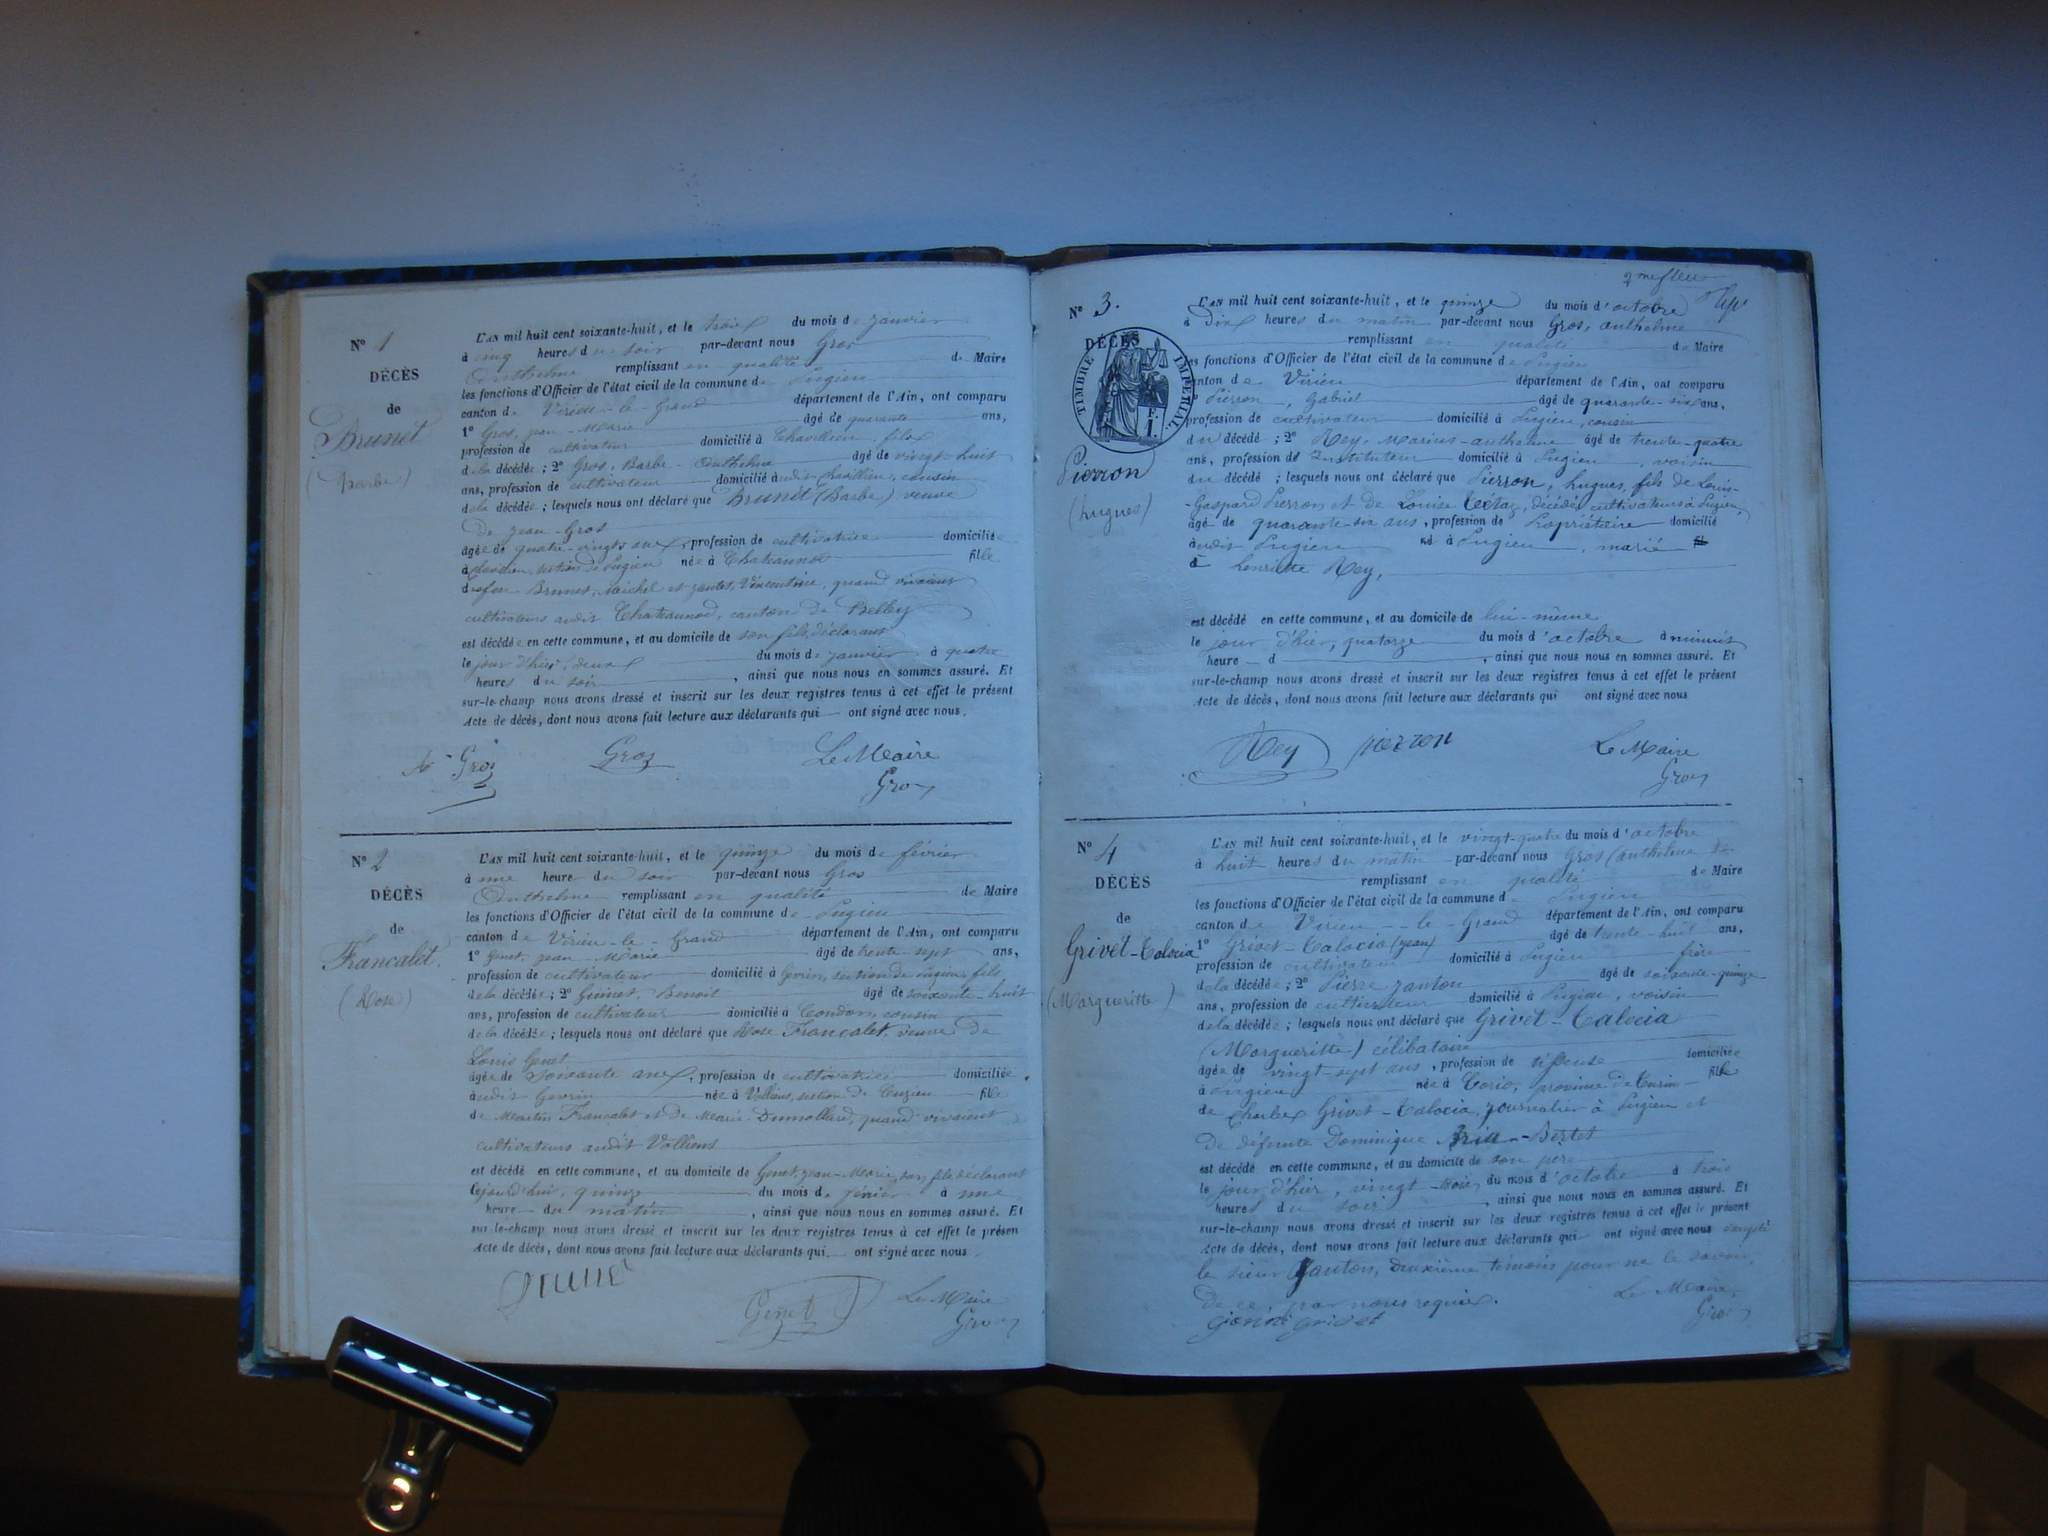 N° 1
DÉCÈS
de
Brunet
(Barbe)
L'AN mil huit cent soixante-huit, et le trois du mois de janvier
à cinq heures du soir par-devant nous Gros
Anthelme remplissant en qualité de Maire
les fonctions d'Officier de l'état civil de la commune de Pugieu
canton de Virieu-le-Grand département de l'Ain, ont comparu
1° Gros, jean-Marie âgé de quarante ans,
profession de cultivateur domicilié à Chavillieu, fils
de la décédée ; 2° Gros, Barbe-Anthelme âgé de vingt-huit
ans, profession de cultivateur domicilié audit Chavillieu, cousin
de la décédée ; lesquels nous ont déclaré que Brunet (Barbe) veuve
de jean-Gros
âgée de quatre-vingts ans, profession de cultivatrice domiciliée
à Chavillieu, section de Pugieu née à Chateaunod fille
de feu Brunet, Michel et Vincentine, quand vivaient
cultivateurs audit Chateaunod, canton de Belley
est décédée en cette commune, et au domicile de son fils, déclarant
le jour d'hier, deux du mois de janvier à quatre
heures du soir, ainsi que nous nous en sommes assuré. Et
sur-le-champ nous avons dressé et inscrit sur les deux registres tenus à cet effet le présent
Acte de décès, dont nous avons fait lecture aux déclarants qui ont signé avec nous.
Gros Gros Le Maire
Gros
N° 2
DÉCÈS
de
Francalet
(Rose)
L'AN mil huit cent soixante-huit, et le quinze du mois de février
à une heure du soir par-devant nous Gros
Anthelme remplissant en qualité de Maire
les fonctions d'Officier de l'état civil de la commune de Pugieu
canton de Virieu-le-Grand département de l'Ain, ont comparu
1° Genet, jean-Marie âgé de trente-sept ans,
profession de cultivateur domicilié à Gevrin, section de Pugieu, fils
de la décédée ; 2° Guinet, Benoit âgé de soixante-huit
ans, profession de cultivateur domicilié à Condom, cousin
de la décédée ; lesquels nous ont déclaré que Rose Francalet, veuve de
Louis Genet
âgée de soixante ans, profession de cultivatrice domiciliée
audit Gevrin née à Vollien, section de Cuzieu fille
de Martin Francalet et de Marie Dumollard, quand vivaient
cultivateurs audit Volliens
est décédé en cette commune, et au domicile de Genet, jean-Marie, son fils déclarant
cejourd'hui, quinze du mois de février à une
heure du matin, ainsi que nous nous en sommes assuré. Et
sur-le-champ nous avons dressé et inscrit sur les deux registres tenus à cet effet le présen
Acte de décès, dont nous avons fait lecture aux déclarants qui ont signé avec nous.
Genet Le Maire
Gros
N° 3.
DÉCÈS
TIMBRE IMPÉRIAL
Pierron
(hugues)
L'AN mil huit cent soixante-huit, et le quinze du mois d'octobre
à dix heures du matin par-devant nous Gros, anthelme
remplissant en qualité de Maire
les fonctions d'Officier de l'état civil de la commune de Pugieu
canton de Virieu département de l'Ain, ont comparu
Pierron, Gabriel âgé de quarante-six ans,
profession de cultivateur domicilié à Pugieu, cousin
du décédé ; 2° Rey, Marius-anthelme âgé de trente-quatre
ans, profession de Instituteur domicilié à Pugieu, voisin
du décédé ; lesquels nous ont déclaré que Pierron, hugues, fils de Louis-
Gaspard Pierron et de Louise Tétaz, décédés cultivateurs à Pugieu,
âgé de quarante-six ans, profession de Propriétaire domicilié
audit Pugieu né à Pugieu, marié
à henriette Rey,
est décédé en cette commune, et au domicile de lui-même
le jour d'hier, quatorze du mois d'octobre à minuit
heure d, ainsi que nous nous en sommes assuré. Et
sur-le-champ nous avons dressé et inscrit sur les deux registres tenus à cet effet le présent
Acte de décès, dont nous avons fait lecture aux déclarants qui ont signé avec nous
Rey pierron Le Maire
Gros
N° 4
DÉCÈS
de
Grivet-Talocia
(Margueritte)
L'AN mil huit cent soixante-huit, et le vingt-quatre du mois d'octobre
à huit heures du matin par-devant nous Gros (anthelme
remplissant en qualité de Maire
les fonctions d'Officier de l'état civil de la commune de Pugieu
canton de Virieu-le-Grand département de l'Ain, ont comparu
1° Grivet-Talocia (jean) âgé de trente-huit ans,
profession de cultivateur domicilié à Pugieu frère
de la décédée ; 2° Pierre janton âgé de soixante-quinze
ans, profession de cultivateur domicilié à Pugieu, voisin
de la décédée ; lesquels nous ont déclaré que Grivet-Talocia
(Margueritte) célibataire
âgée de vingt-sept ans, profession de domiciliée
à Pugieu née à Corio, province de Turin fille
de Charles Grivet-Talocia, journalier à Pugieu et
de défunte Dominique Bertet
est décédé en cette commune, et au domicile de son père
le jour d'hier, vingt-trois du mois d'octobre à trois
heures du soir, ainsi que nous nous en sommes assuré. Et
sur-le-champ nous avons dressé et inscrit sur les deux registres tenus à cet effet le présent
Acte de décès, dont nous avons fait lecture aux déclarants qui ont signé avec nous excepté
le sieur janton, deuxième témoin pour ne le savoir
de ce, par nous requis. Le Maire,
grivet Gros